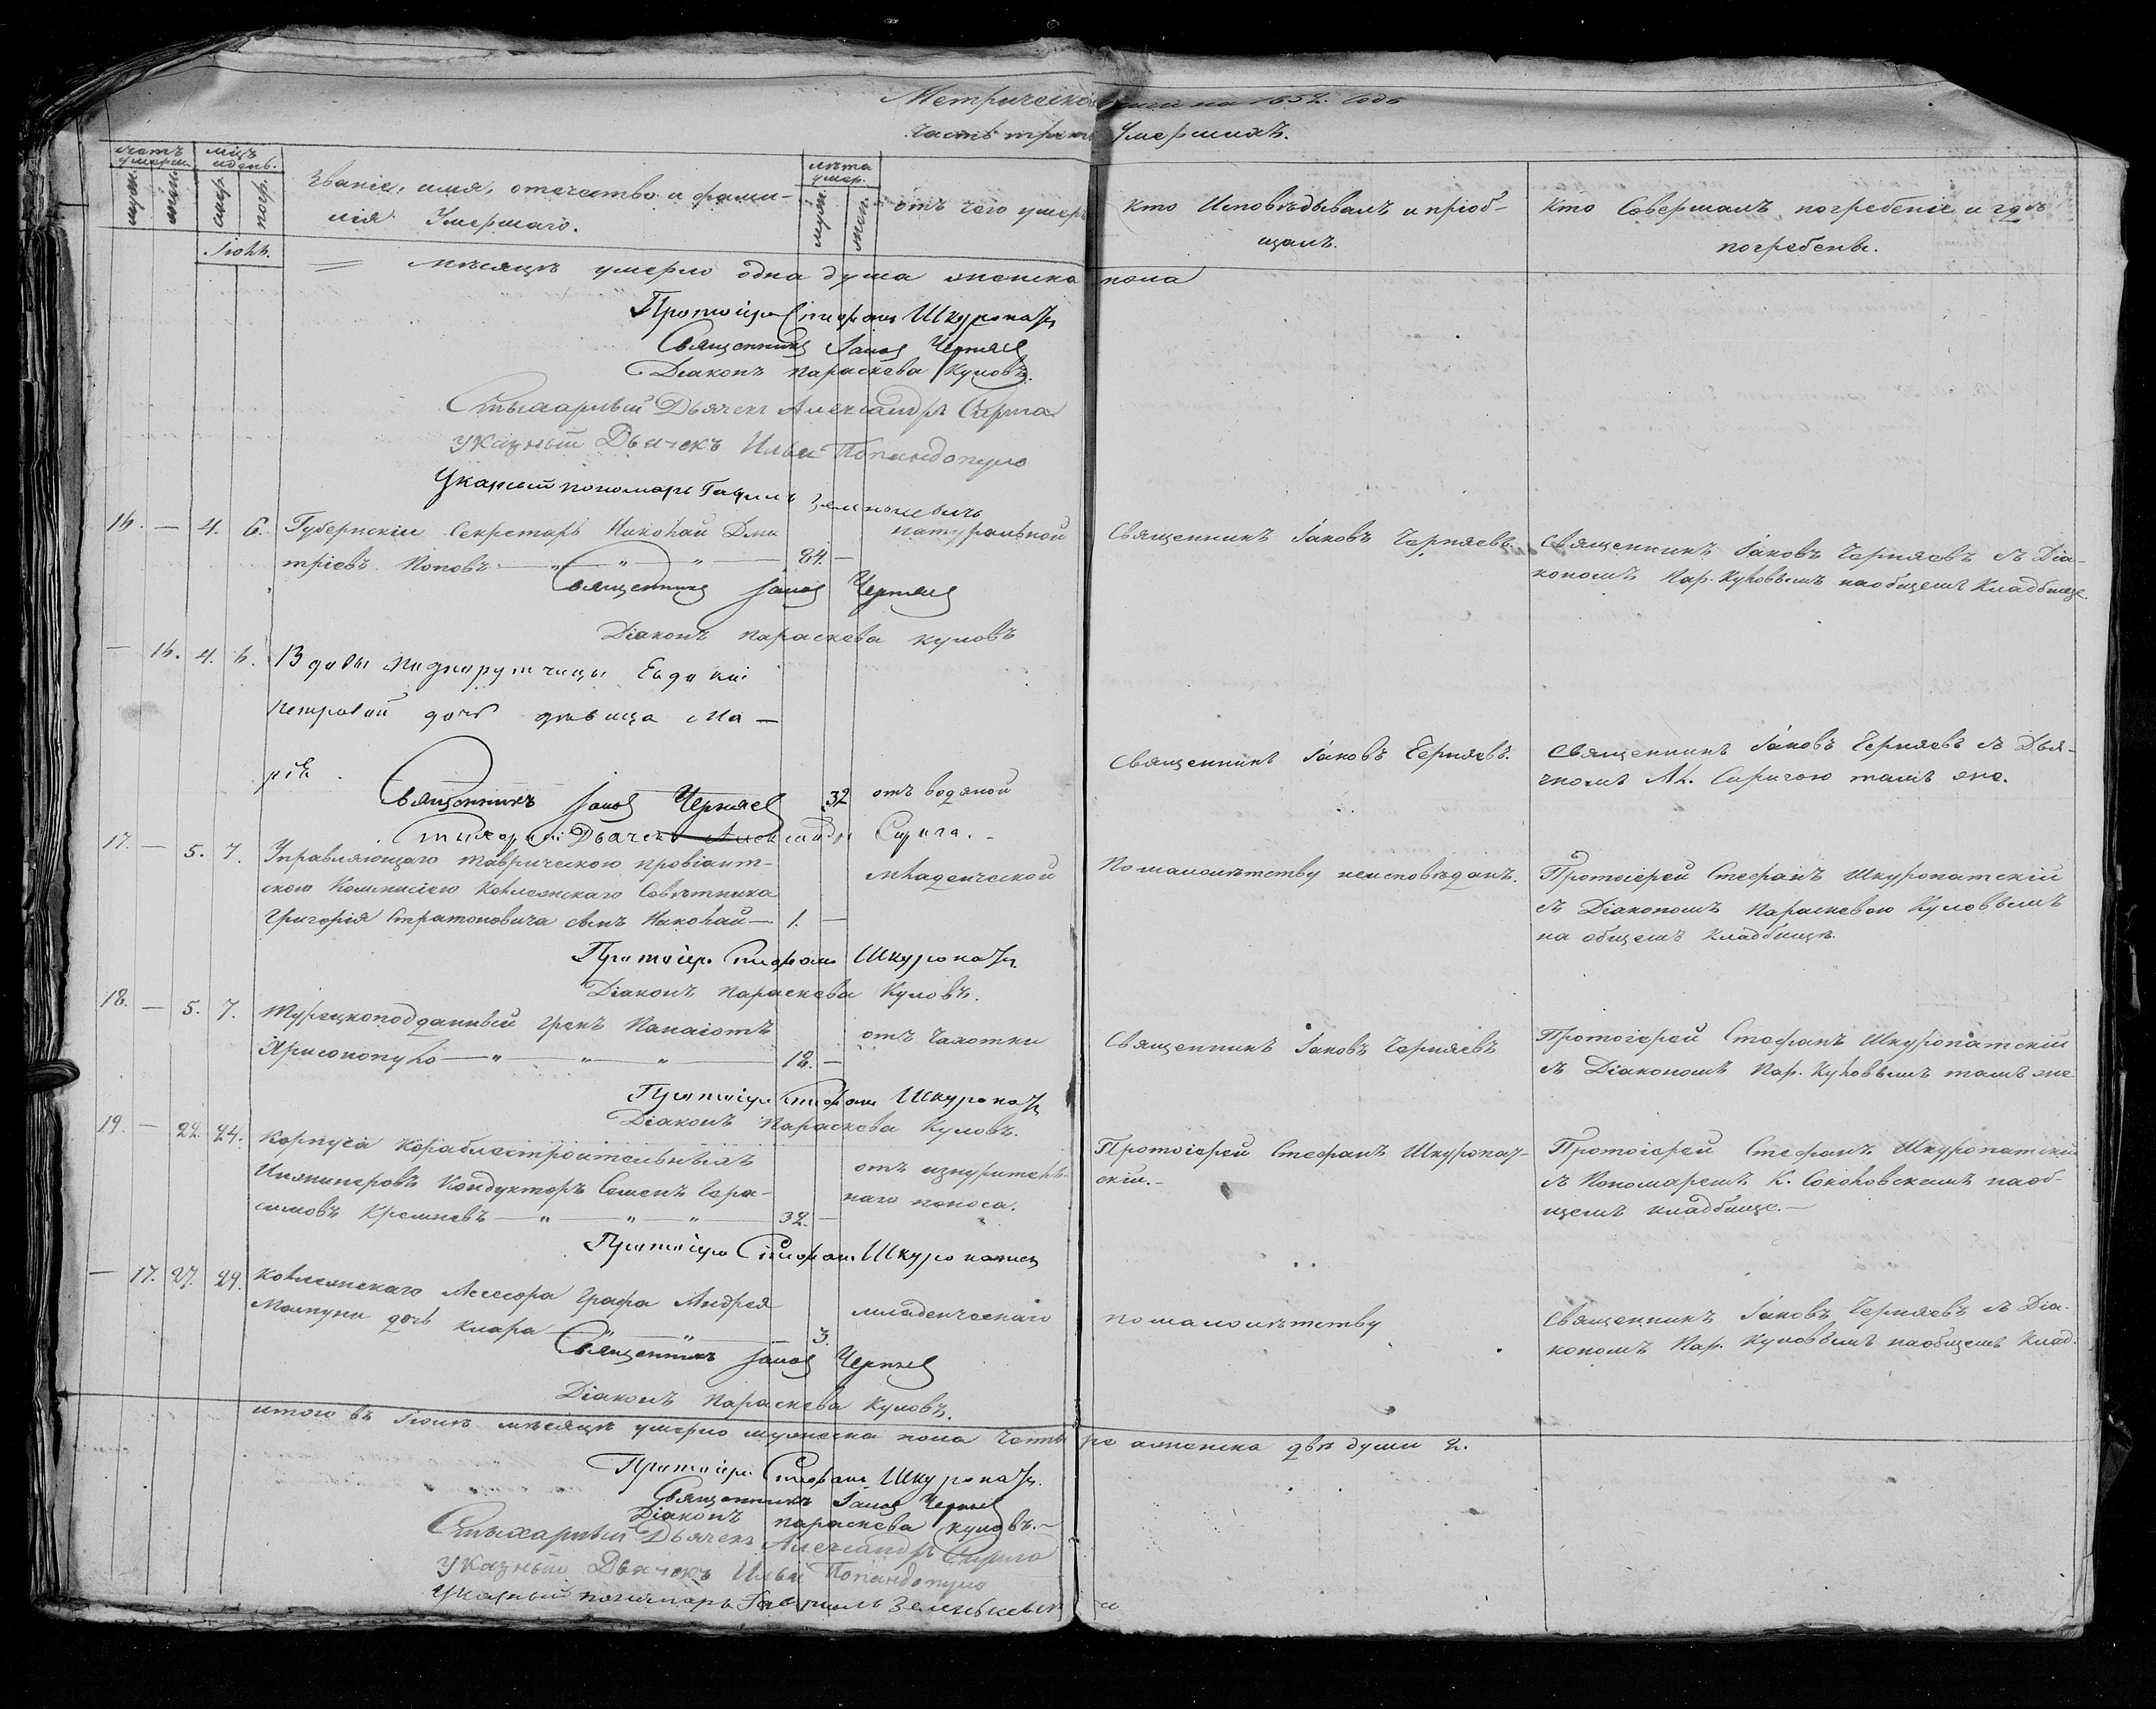 Метрической книги на 185 годъ
Часть третья Умершихъ.
счетъ умерш.
муж.
жен.
мѣц. и день.
смер.
погр.
Званіе, имя, отечество и фами-
лія Умершаго.
лѣта умер.
муж.
жен.
отъ чего умеръ
кто Исповѣдывалъ и пріоб-
щалъ.
кто Совершалъ погребеніе и гдѣ
погребены.
Іюнь.
мѣсяцѣ умерло одна душа женска пола
Протоіер Стефанъ Шкуропат
Священникъ Іаков Черняев
Діаконъ Параскева Куловъ.
Стихарный Дьячек Александръ Сирига
указный Дьячекъ Илья Попандопуло
Указный пономарь Гавриилъ Зеленкевичъ
16. — 4. 6. Губернскій Секретарь Николай Дми
тріевъ Поповъ — „ — „ — „ — 84. —
натуральной
Священникъ Іаковъ Черняевъ.
Священникъ Іаковъ Черняевъ съ Діа-
кономъ Пар. Куловымъ наобщемъ Кладбище.
Священникъ Іаков Черняев
Діаконъ Параскева Куловъ
— 16. 4. 6. Вдовы Подпорутчицы Евдокіи
Петровой дочь дѣвица Ма—
рія.
32
отъ водяной
Священникъ Іаковъ Черняевъ.
Священникъ Іаковъ Черняевъ съ Дья-
чкомъ Ал. Сиригою тамъ же.
Священникъ Іаков Черняев
Стихарный Дьячек Александръ Сирига.
17. — 5. 7. Управляющаго Таврическою провіант-
скою Коммисіею Коллежскаго Совѣтника
Григорія Стратоновича сынъ Николай — 1. —
младенческой
По малолѣтству неисповѣданъ.
Протоіерей Стефанъ Шкуропатскій
съ Діакономъ Параскевою Куловымъ
на общемъ Кладбищѣ.
Протоіер. Стефанъ Шкуропат.
Діаконъ Параскева Куловъ.
18. — 5. 7. Турецкоподданный грекъ Панаіотъ
Хрисопопуло — „ — „ — „ — 18. —
отъ Чахотки
Священникъ Іаковъ Черняевъ
Протоіерей Стефанъ Шкуропатскій
съ Діакономъ Пар. Куловымъ тамъ же
Протоіер Стефанъ Шкуропат
Діаконъ Параскева Куловъ.
19. — 22. 24. Корпуса Кораблестроительныхъ
Инжинеровъ Кондукторъ Семенъ Гера-
симовъ Кремневъ — „ — „ — „ — 32. —
отъ изнуритель-
наго поноса.
Протоіерей Стефанъ Шкуропат-
скій. —
Протоіерей Стефанъ Шкуропатскій
съ Пономаремъ К. Соколовскимъ наоб-
щемъ кладбище. —
Протоіер Стефанъ Шкуропатск
— 17. 27. 29. Коллежскаго Ассесора Графа Андрея
дочь Клара — „ — „ — 3.
младенческаго
по малолѣтству
Священникъ Іаковъ Черняевъ съ Діа-
кономъ Пар. Куловымъ наобщемъ Клад.
Священникъ Іаков Черняев
Діаконъ Параскева Куловъ.
итого въ Іюнѣ мѣсяцѣ умерло мужеска пола четыре женска двѣ души 2.
Протоіер. Стефанъ Шкуропат.
Священникъ Іаков Черняев
Діаконъ Параскева Куловъ. —
Стихарный Дьячек Александръ Сирига
указный Дьячекъ Илья Попандопуло
Указный пономарь Гавриилъ Зеленкевичъ